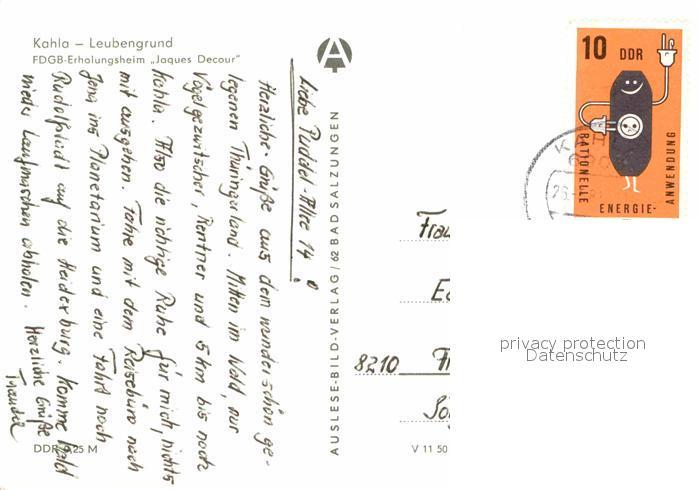 Kahla – Leubengrund
FDGB-Erholungsheim „Jaques Decour"
Liebe Puddel-Alte 14 !
Herzliche Grüße aus dem wunderschön ge-
legenen Thüringerland. Mitten im Wald, nur
Vogelgezwitscher, Rentner und 5 km bis nach
Kahla. Also die richtige Ruhe für mich, nichts
mit ausgehen. Fahre mit dem Reisebüro nach
Jena ins Planetarium und eine Fahrt nach
Rudolstadt auf die Heidexburg. Komme bald
wieder Laufmaschen abholen. Herzliche Grüße
Traudel
DDR 0,25 M
AUSLESE-BILD-VERLAG / 62 BAD SALZUNGEN
V 11 50
10 DDR
RATIONELLE
ENERGIE-
ANWENDUNG
Frau
8210
privacy protection
Datenschutz